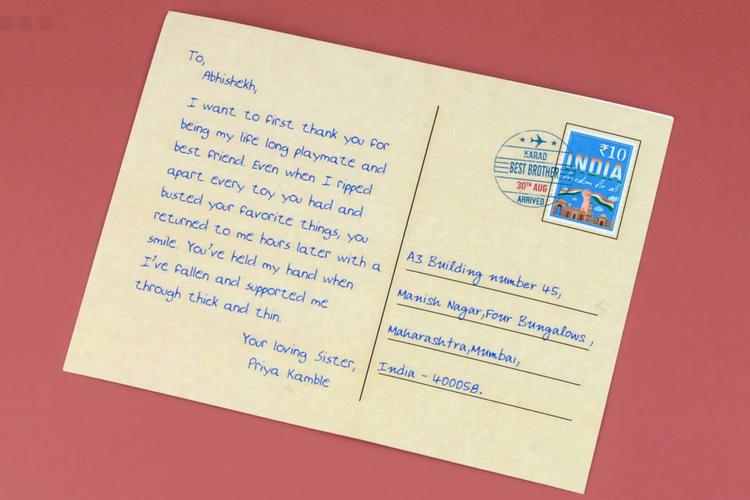 To,
Abhishekh,
I want to first thank you for
being my life long playmate and
best friend. Even when I ripped
apart every toy you had and
busted your favorite things, you
returned to me hours later with a
smile. You've held my hand when
I've fallen and supported me
through thick and thin.
Your loving Sister,
Priya Kamble
KARAD
BEST BROTHER
30TH AUG
ARRIVED
₹10
INDIA
freedom for all
A3 Building number 45,
Manish Nagar,Four Bungalows,
Maharashtra,Mumbai,
India - 400058.